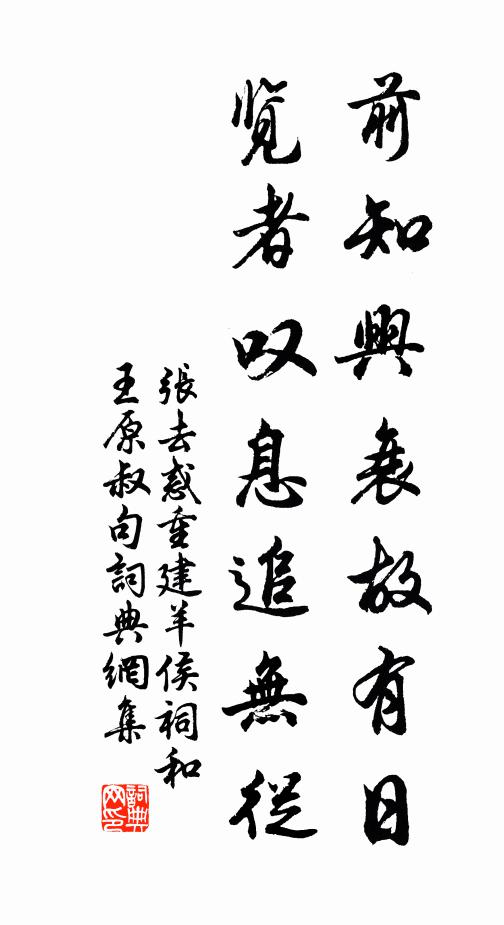 前知興衰故有日
覧者叹息追無從
張去惑重建羊侯祠和
王原叔句詞典網集
詞典
网印